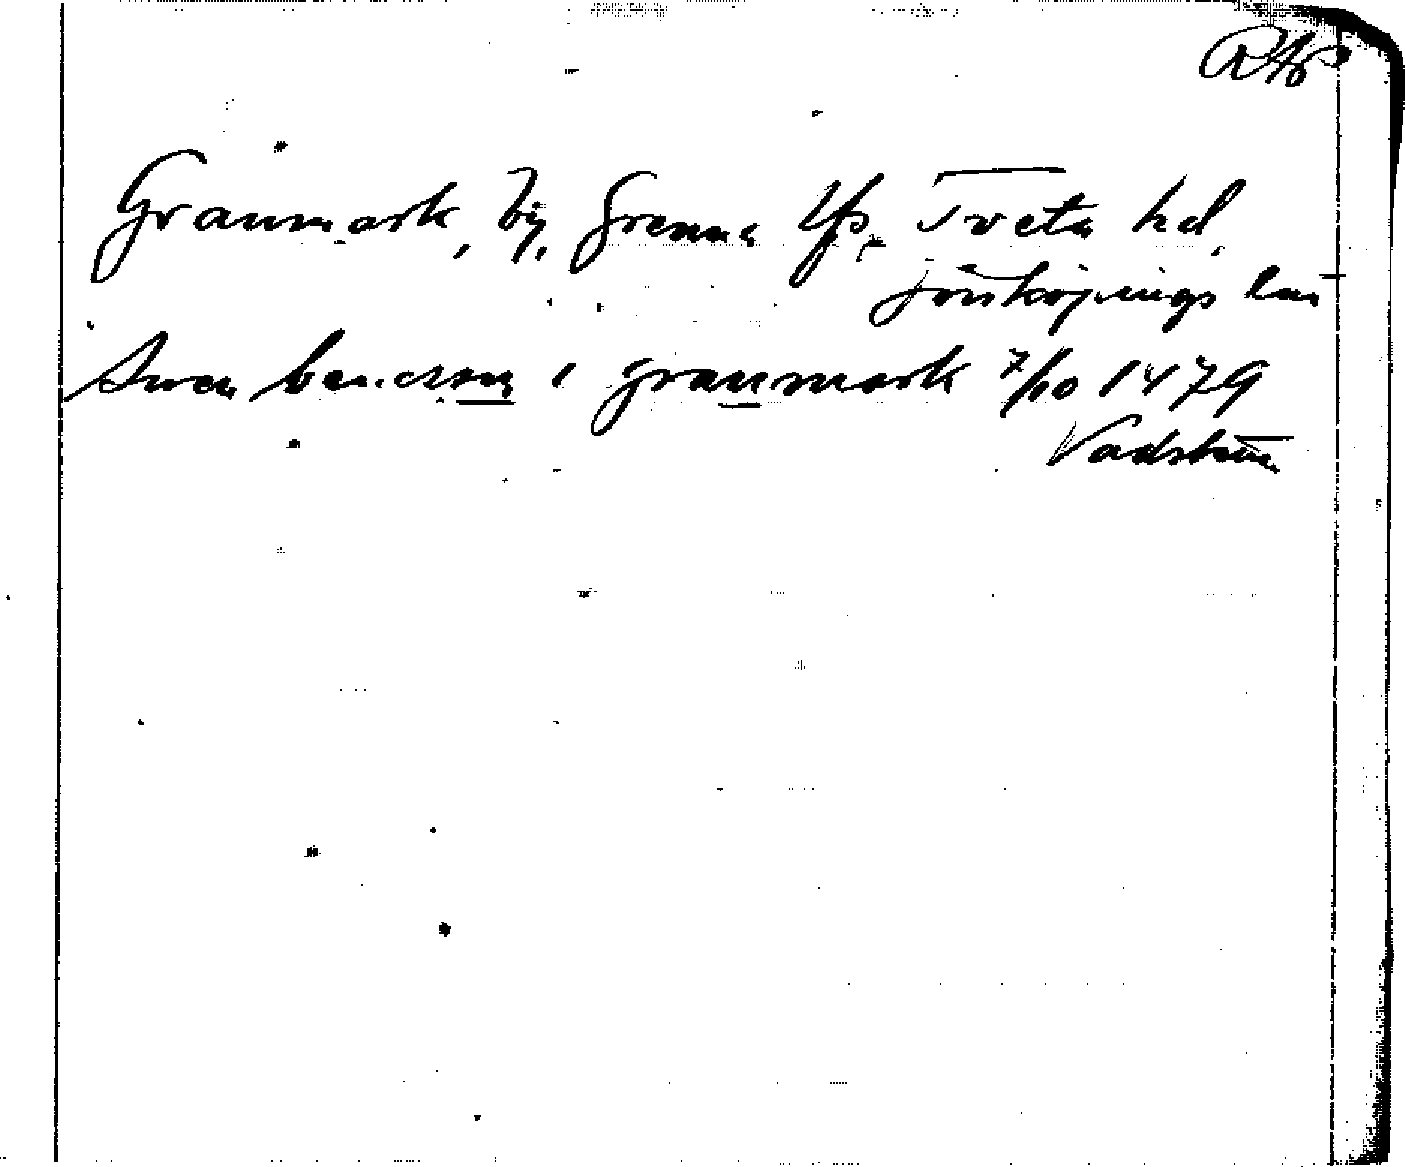 RAp
Granmark, by, Grenna lfs., Tveta hd,
Jönköpings län
Swen benctson i granmark 7/10 1479
Vadstena